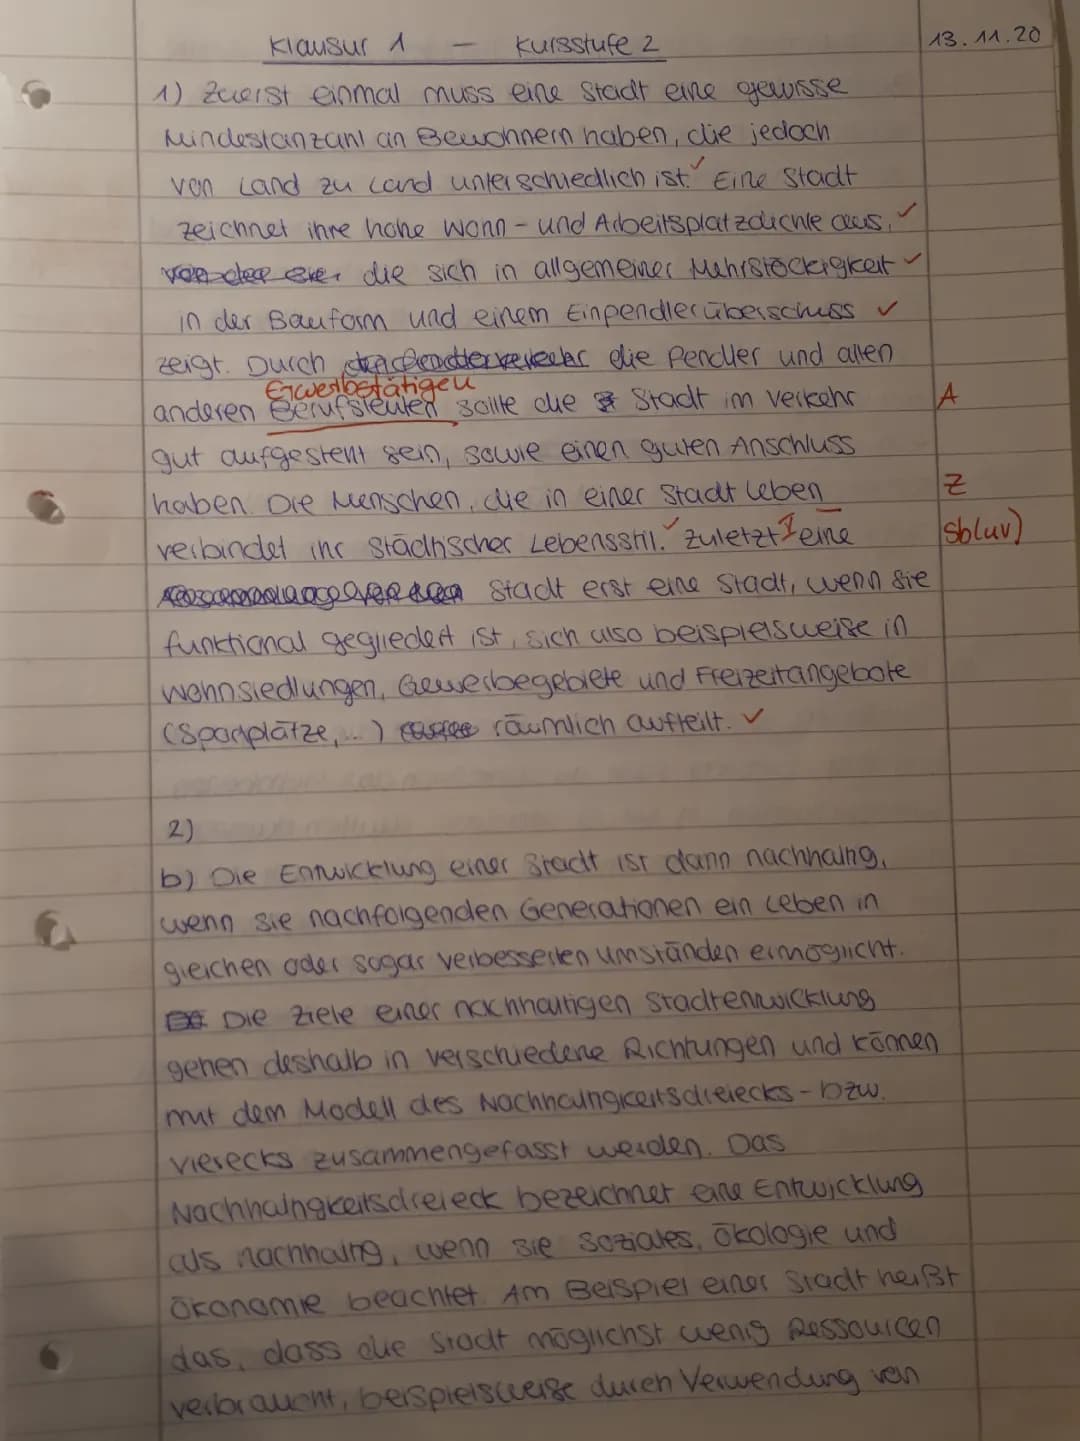 Klausur 1 — Kursstufe 2 13.11.20
1) Zuerst einmal muss eine Stadt eine gewisse
Mindestanzahl an Bewohnern haben, die jedoch
von Land zu Land unterschiedlich ist. Eine Stadt
zeichnet ihre hohe Wohn- und Arbeitsplatzdichte aus,
die sich in allgemeiner Mehrstöckigkeit
in der Bauform und einem Einpendlerüberschuss
zeigt. Durch die Pendler und allen
Erwerbstätigen
anderen Berufsleuten sollte die Stadt im Verkehr A
gut aufgestellt sein, sowie einen guten Anschluss
haben. Die Menschen, die in einer Stadt leben Z
verbindet ihr städtischer Lebensstil. Zuletzt I eine Sb(uv)
Stadt erst eine Stadt, wenn sie
funktional gegliedert ist, sich also beispielsweise in
Wohnsiedlungen, Gewerbegebiete und Freizeitangebote
(Sportplätze,...) räumlich aufteilt.
2)
b) Die Entwicklung einer Stadt ist dann nachhaltig,
wenn sie nachfolgenden Generationen ein Leben in
gleichen oder sogar verbesserten Umständen ermöglicht.
Die Ziele einer nachhaltigen Stadtentwicklung
gehen deshalb in verschiedene Richtungen und können
mit dem Modell des Nachhaltigkeitsdreiecks- bzw.
vierecks zusammengefasst werden. Das
Nachhaltigkeitsdreieck bezeichnet eine Entwicklung
als nachhaltig, wenn sie Soziales, Ökologie und
Ökonomie beachtet. Am Beispiel einer Stadt heißt
das, dass die Stadt möglichst wenig Ressourcen
verbraucht, beispielsweise durch Verwendung von